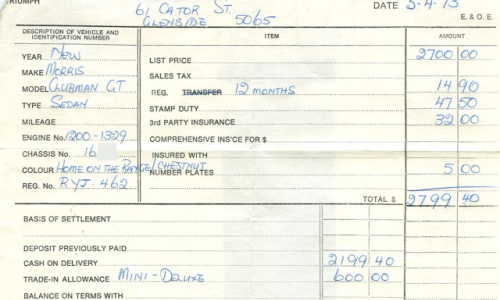 TRIUMPH 61 CATOR ST. DATE 5-4-73
GLENSIDE 5065
E. & O. E.
DESCRIPTION OF VEHICLE AND IDENTIFICATION NUMBER ITEM AMOUNT
YEAR New LIST PRICE 2700 00
MAKE Morris SALES TAX
MODEL CLUBMAN GT REG. TRANSFER 12 MONTHS 14 90
TYPE Sedan STAMP DUTY 47 50
MILEAGE 3rd PARTY INSURANCE 32 00
ENGINE No. 1200-1329 COMPREHENSIVE INS'CE FOR $
CHASSIS No. 16 INSURED WITH
COLOUR HOME ON THE RANGE/CHESTNUT NUMBER PLATES 5 00
REG. No. RYJ-462
TOTAL $ 2799 40
BASIS OF SETTLEMENT
DEPOSIT PREVIOUSLY PAID
CASH ON DELIVERY 2199 40
TRADE-IN ALLOWANCE MINI-DELUXE 600 00
BALANCE ON TERMS WITH